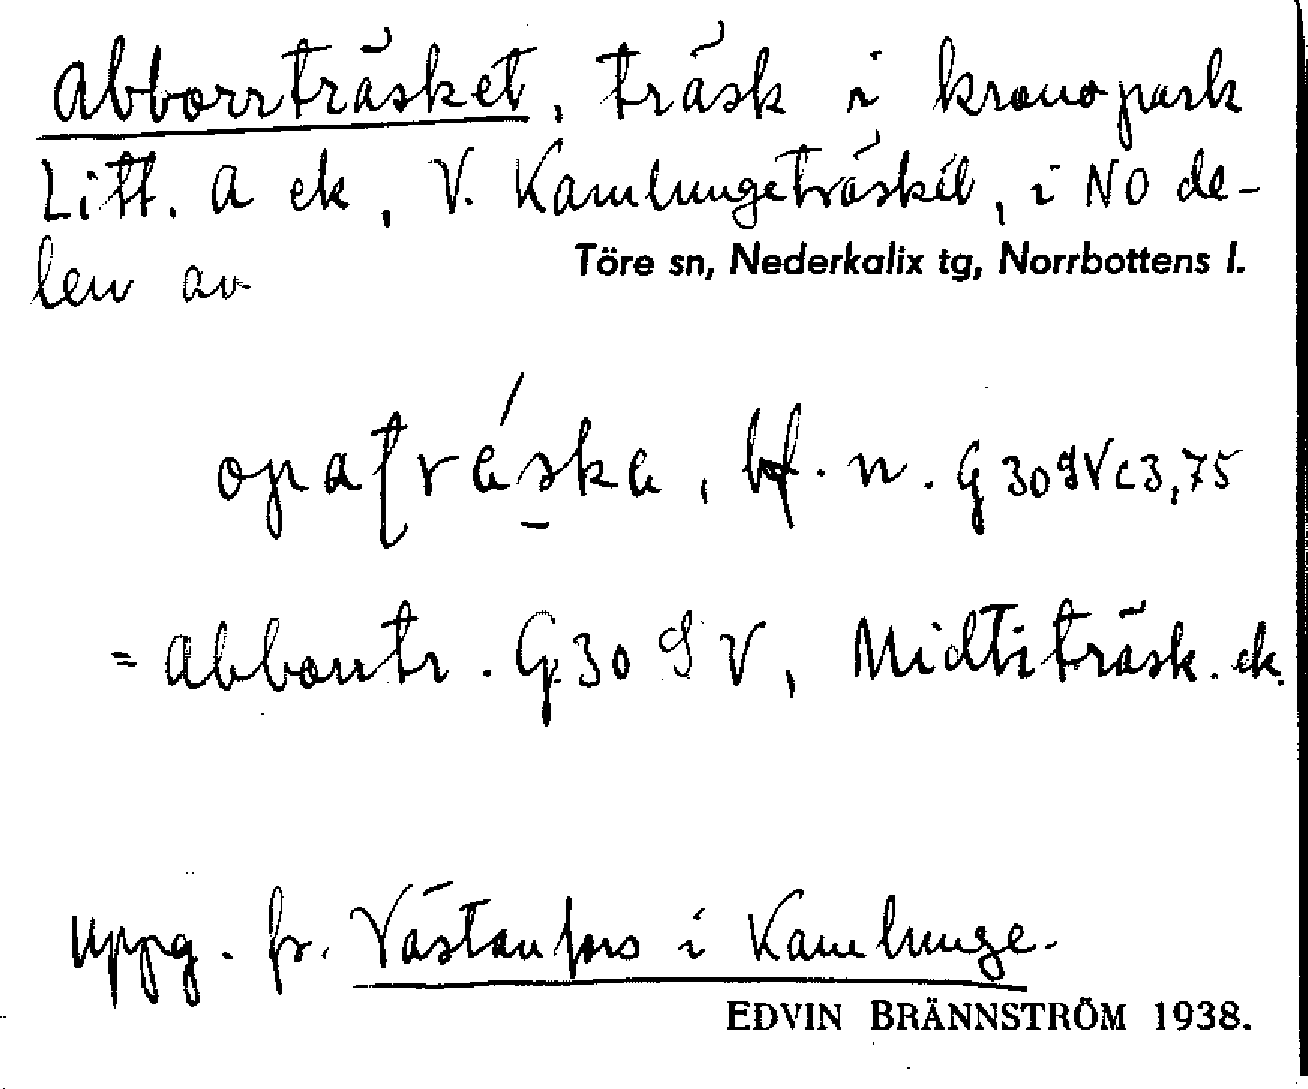 Abborrträsket, träsk i kronopark
Litt. A ek, V. Kamlungeträsket, i NO de-
len av
Töre sn, Nederkalix tg, Norrbottens l.
bf. n. G 30 SV c 3,75
= Abborrtr. G 30 SV, Midtiträsk. ek.
Uppg. fr. Västanfors i Kamlunge.
EDVIN BRÄNNSTRÖM 1938.